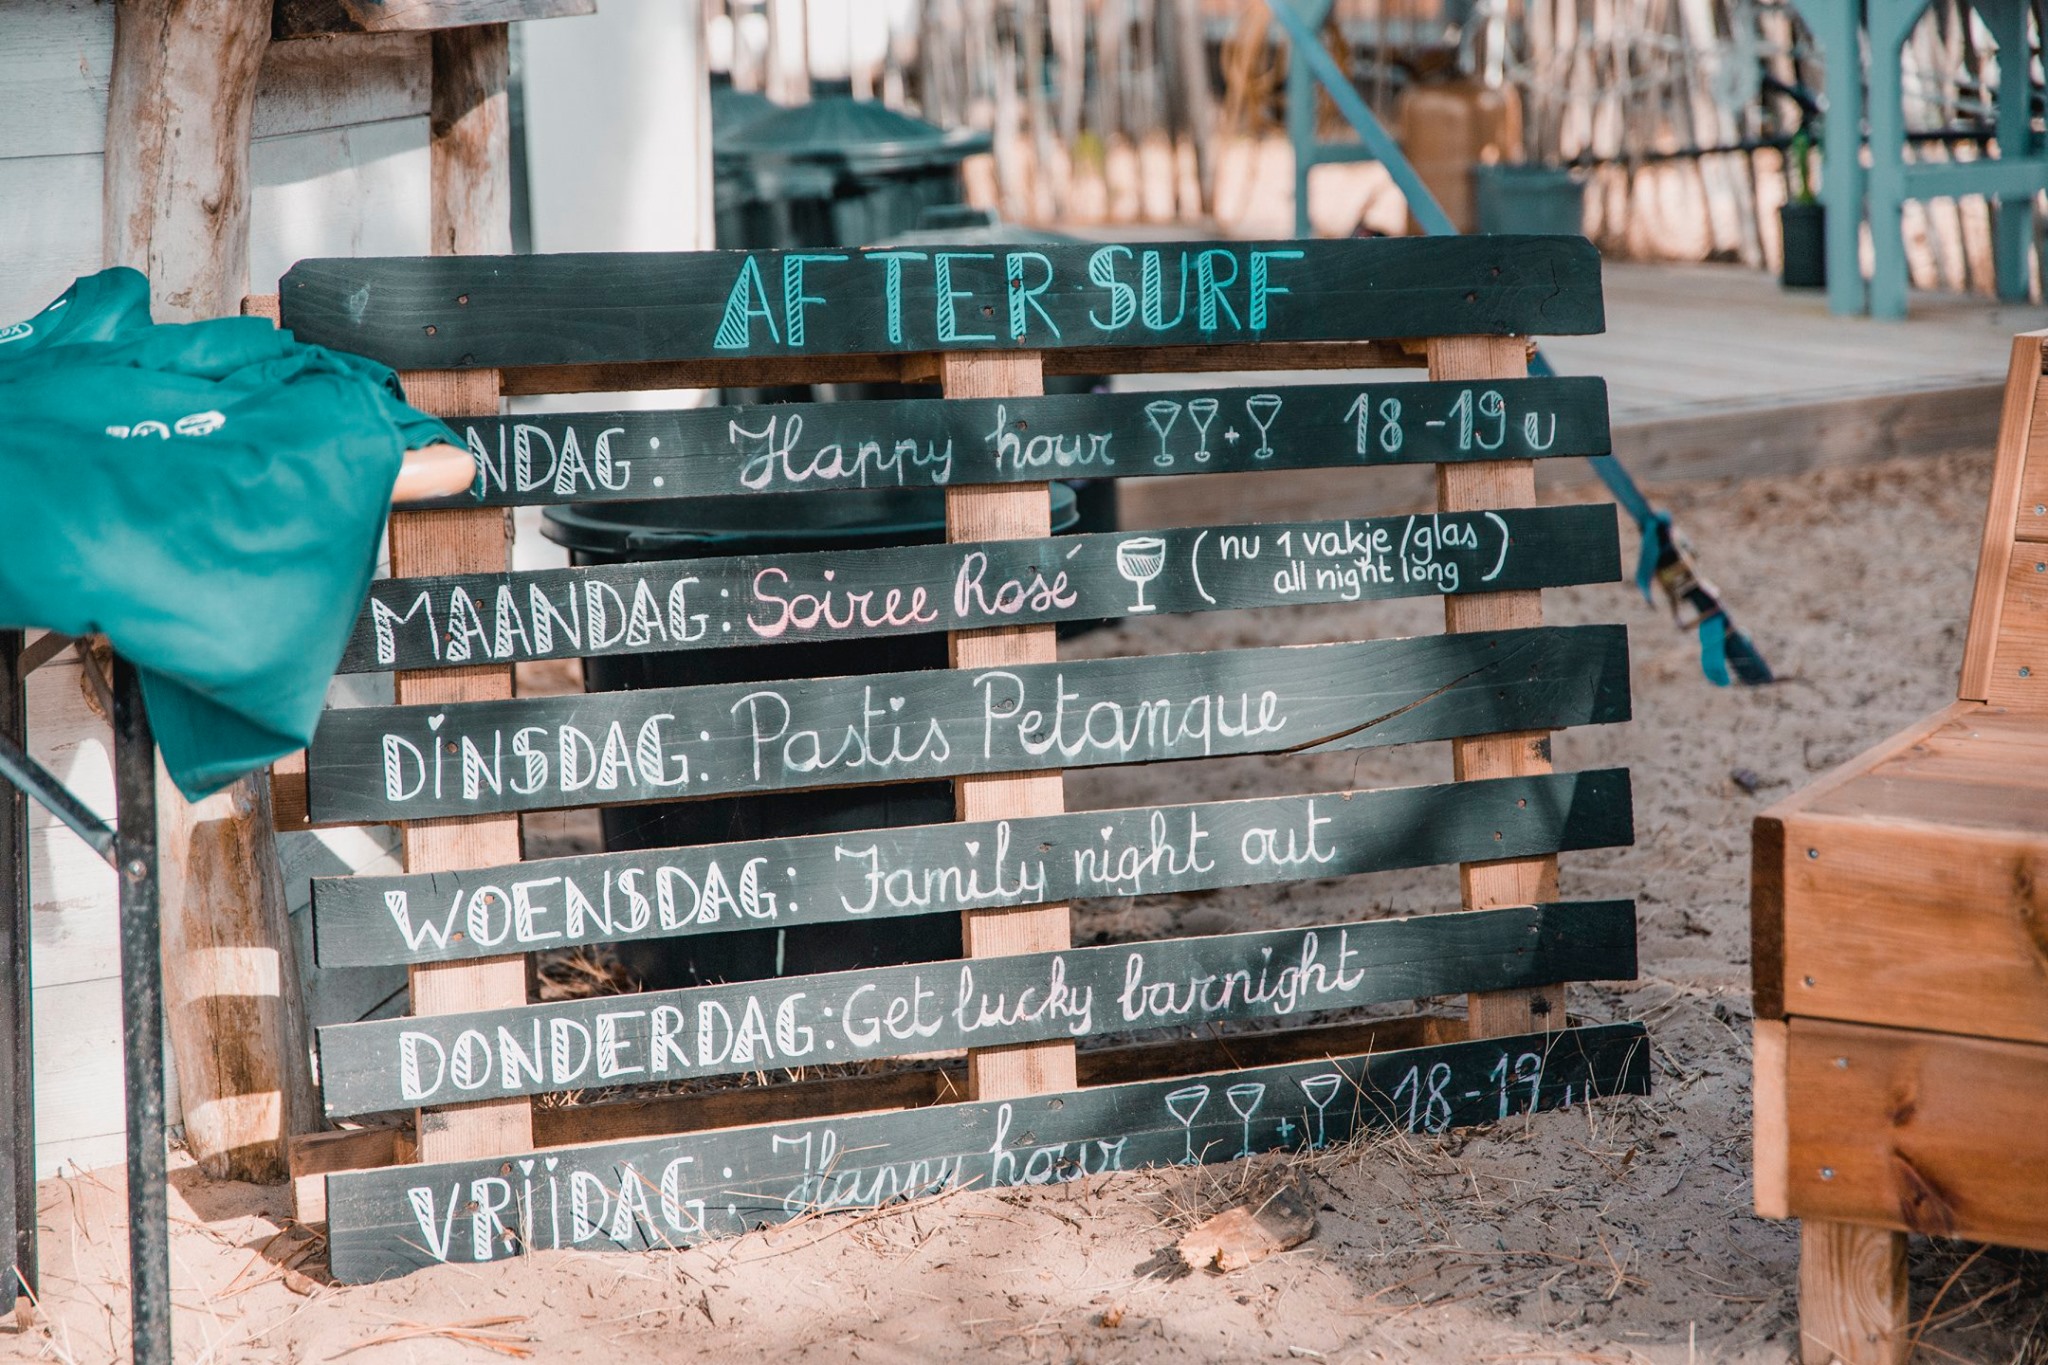 AFTER SURF
NDAG: Happy hour + 18-19u
MAANDAG: Soiree Rosé (nu 1 vakje/glas
all night long)
DINSDAG: Pastis Petanque
WOENSDAG: Family night out
DONDERDAG: Get lucky barnight
VRIJDAG: Happy hour + 18-19u